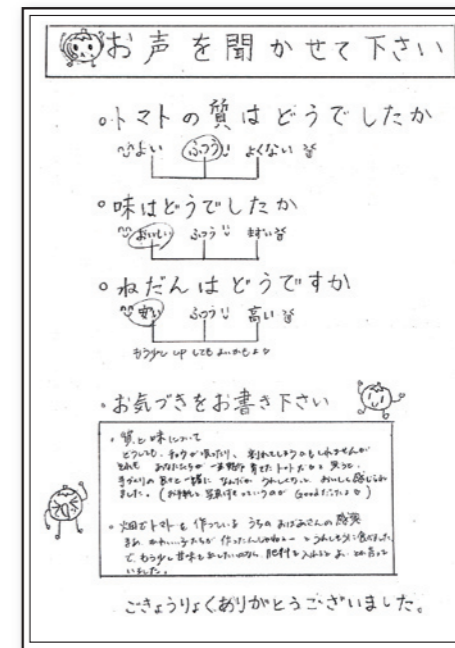 お声を聞かせて下さい
。トマトの質はどうでしたか
よい ふつう よくない
。味はどうでしたか
おいしい ふつう まずい
。ねだんはどうですか
安い ふつう 高い
もう少しupしてもよいかもよ
・お気づきをお書き下さい
・質と味について
どうしても、チョウが吸ったり、割れてしまうかもしれませんが
それも あなたたちが 一生懸命 育てたトマトだなぁと思うと、
手づくりの 一緒に なんだか うれしくなって、おいしく感じられ
ました。(お手紙と写真付きっていうのが Goodだったよ)
・畑でトマトを作っている うちのおばあさんの感想
まあ、かわいい子たちが 作ったんじゃねぇー とうれしそうに食べました。
で、もう少し甘味を出したいのなら、肥料を入れると よい とか言って
いました。
ごきょうりょくありがとうございました。